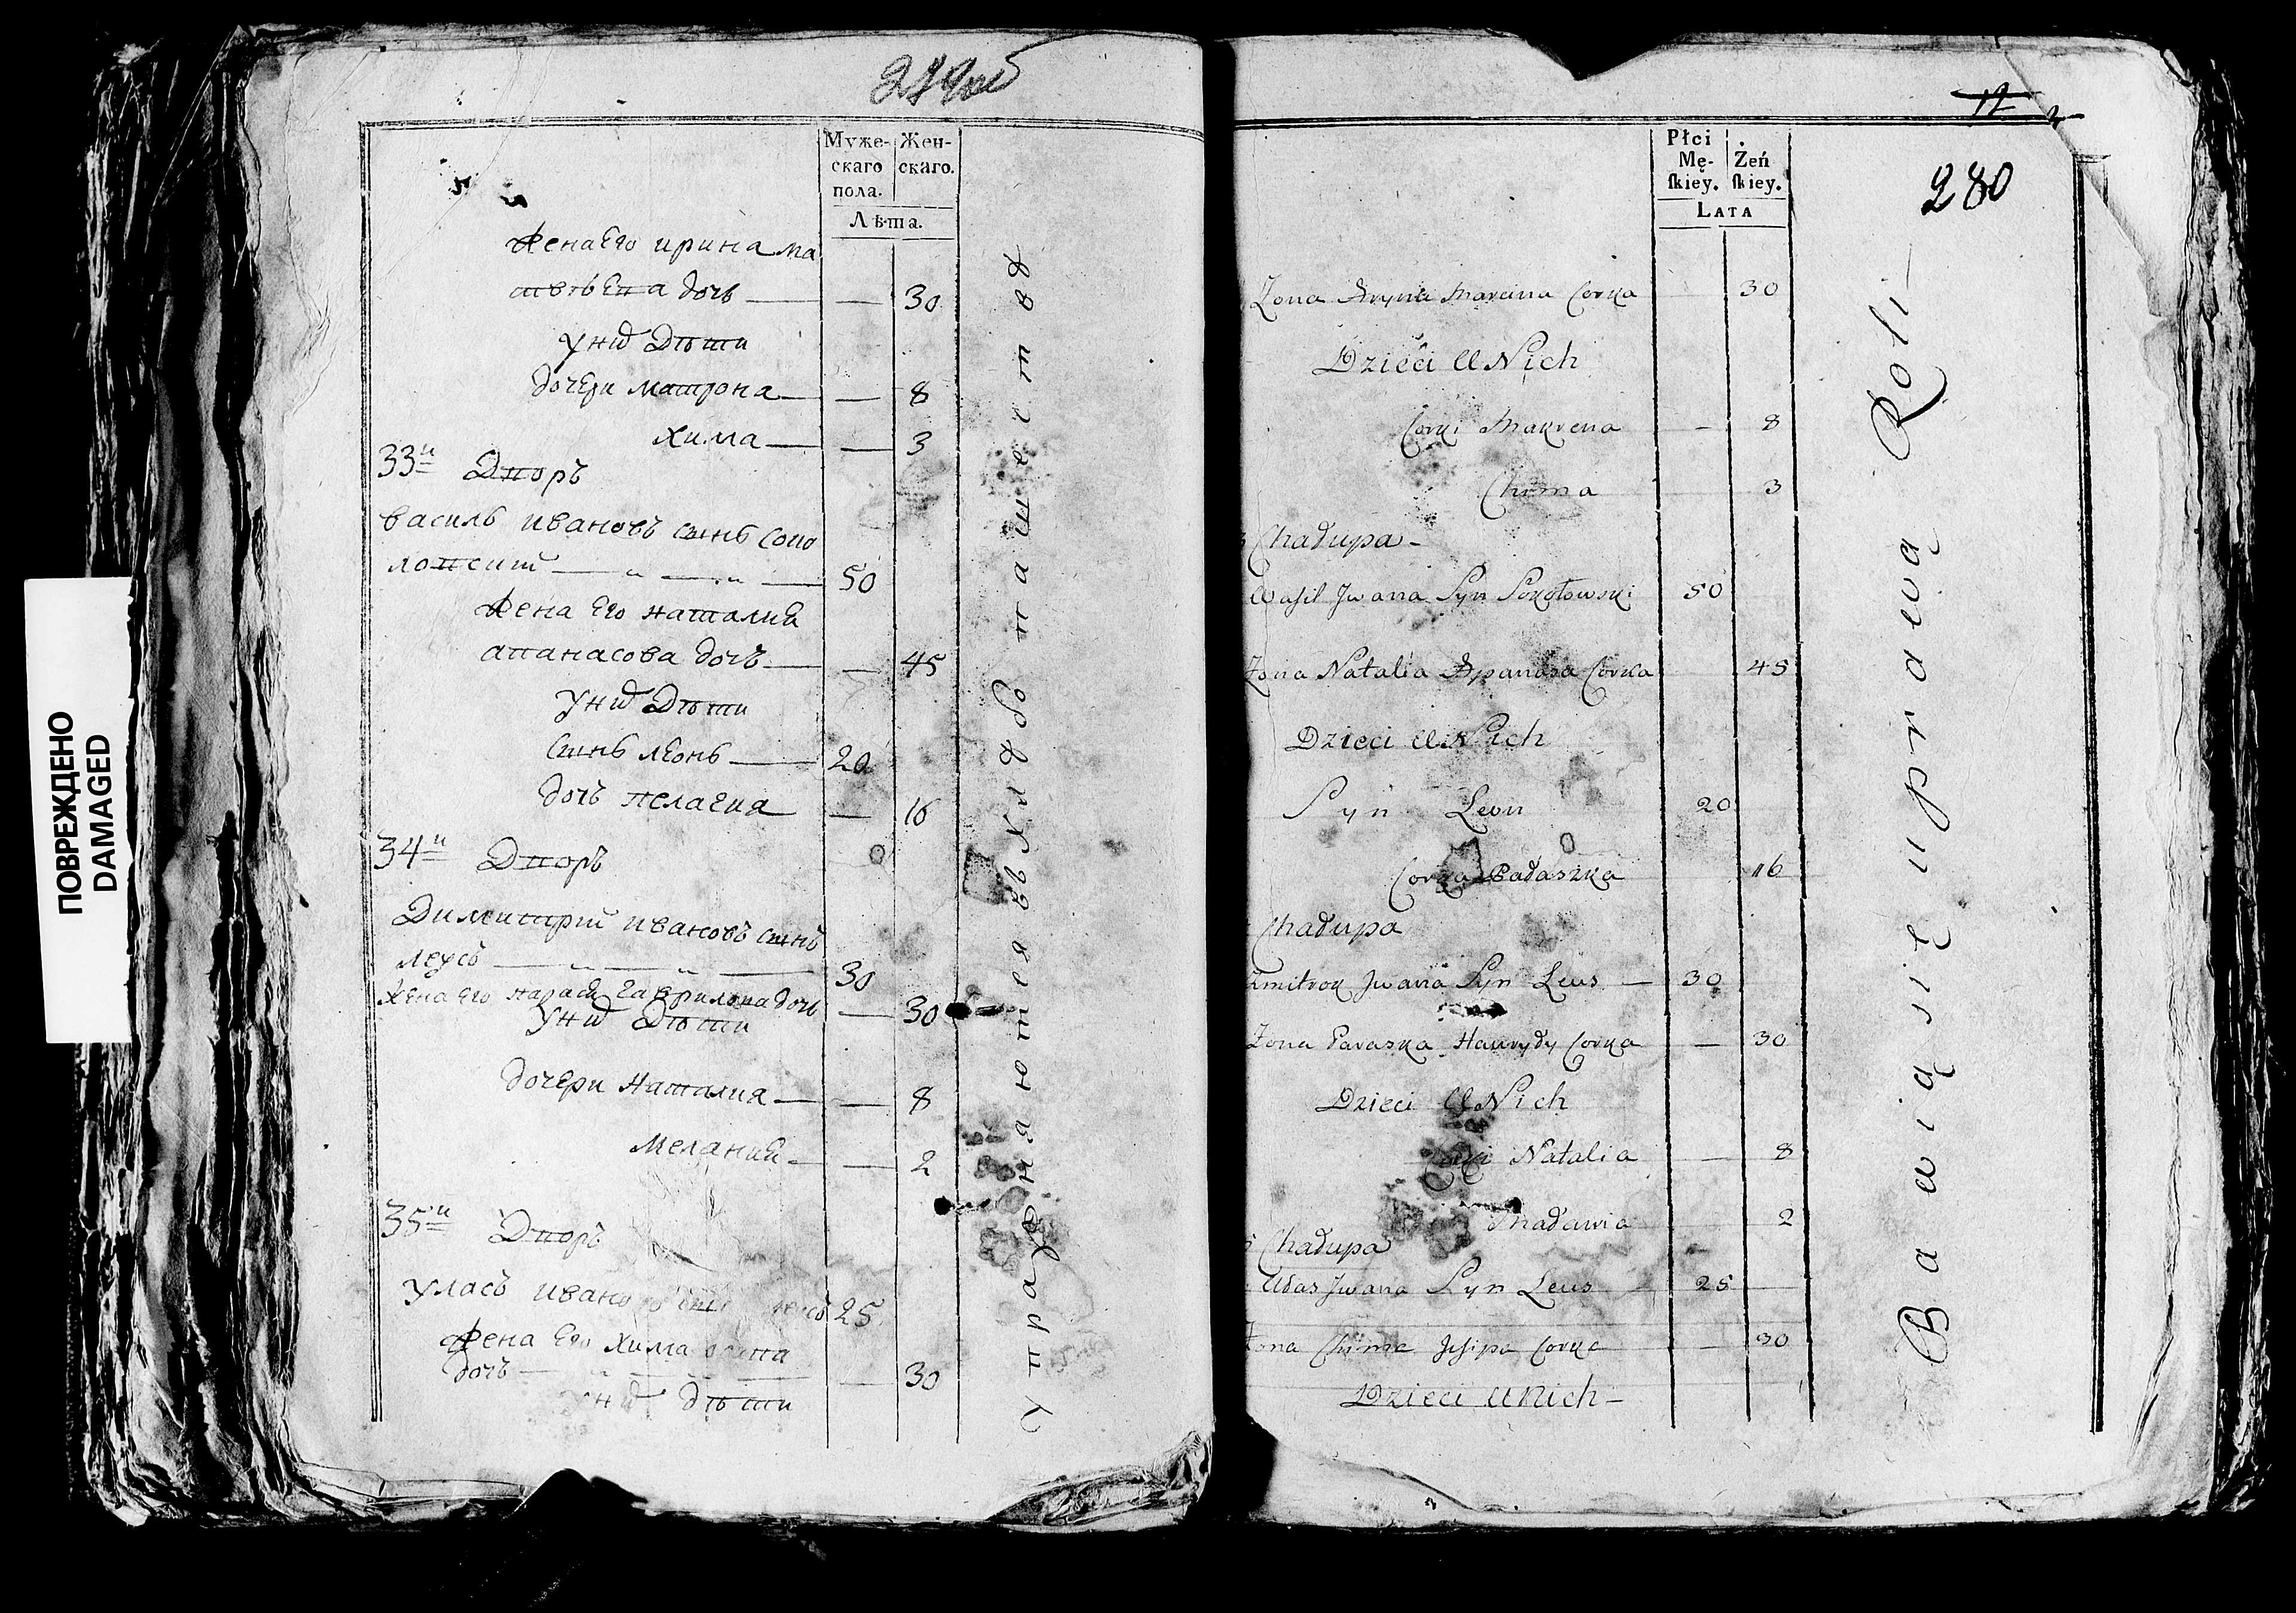 279об
Муже-
скаго
пола.
Жен-
скаго.
Лѣта.
Жена Его ирина ма
твѣева дочь — — 30
У нихъ Дѣти
дочери матрона — — 8
Хима — — 3
33й Дворъ
василь ивановъ сынъ Соко
ловскій — „ — „ — 50
Жена Его наталия
апанасова дочъ — — 45
У нихъ Дѣти
сынъ леонъ — 20
дочъ пелагия — 16
34й Дворъ
Димитрій ивановъ сынъ
леусъ — „ — „ — 30
Жена Его параска гаврилова дочъ — 30
У нихъ Дѣти
дочери Наталия — — 8
Мелания — — 2
35й Дворъ
уласъ ивано 25
Жена Его Хима
дочъ — 30
Дѣти
упражняются въ хлѣбопашествѣ
ПОВРЕЖДЕНО
DAMAGED
12
280
Płci
Mę-
ſkiey.
Żeń
ſkiey.
Lata
Żona Aryna Marcina Corka 30
Dzieci U Nich
Corki Makrena — 8
Chima 3
Chałupa –
Wasil Jwana Syn Sokołowski 50
Żona Natalia Apanasa Corka 45
Dzieci U Nich
Syn Leon 20
Corka Pałaszka 16
Chałupa
Zmitrok Jwana Syn Leus — 30
Żona Paraska Hawryły Corka — 30
Dzieci U Nich
Corki Natalia — 8
Małania 2
Chałupa
Ułas Jwana Syn Leus 25
Żona Chima Jesipa Corka — 30
Dzieci U Nich –
Bawią się uprawą Roli –